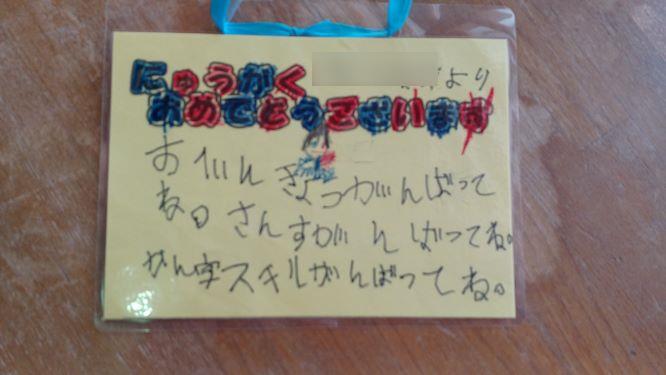 にゅうがく より
おめでとうございます
おべんきょうがんばって
ね。さんすうがんばってね。
かん字スキルがんばってね。